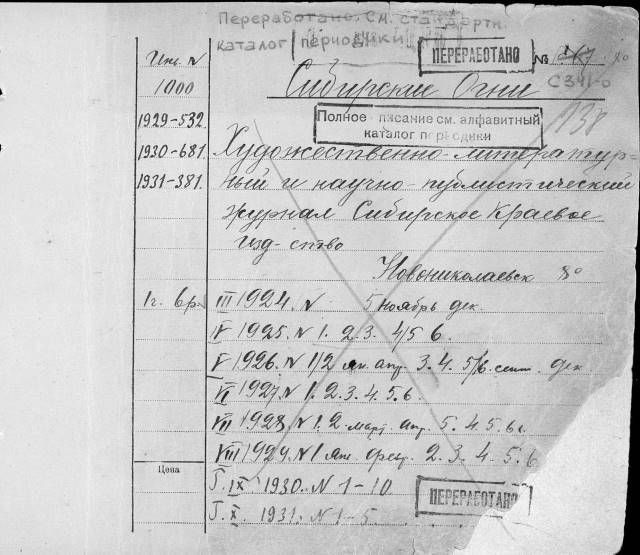 Переработано. См. стандартн.
каталог периодики
ПЕРЕРАБОТАНО
№
C341-0
Инв. N
1000
Сибирские Огни
Полное описание см. алфавитный
каталог периодики
138
1929-532.
1930-681.
1931-381.
Художественно-литератур-
ный и научно-публистический
журнал Сибирское Краевое
изд-ство
Новониколаевск 8°
1 г. 6 р.
III 1924. N 5 ноябрь дек.
IV 1925. N 1. 2. 3. 4/5 6.
V 1926. N 1/2 янв. апр. 3. 4. 5/6. сент. дек
VI 1927. N 1. 2. 3. 4. 5. 6.
VII 1928. N 1. 2. март. апр. 5. 4. 5. 6.
VIII 1929. N 1 янв. февр. 2. 3. 4. 5. 6
Цена
Г. IX 1930. N 1-10
Г. X. 1931. N 1-5
ПЕРЕРАБОТАНО